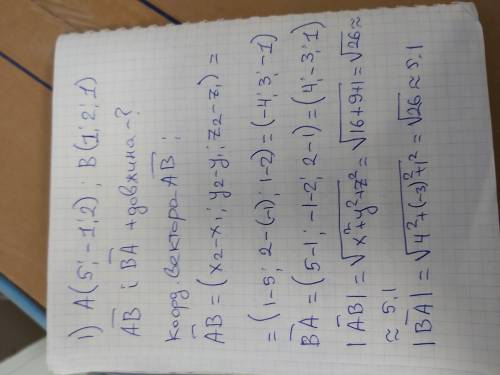 1) A(5; -1; 2); B(1; 2; 1)
AB i BA + довжина - ?
Коорд. вектора AB:
AB = (x₂-x₁; y₂-y₁; z₂-z₁) =
= (1-5; 2-(-1); 1-2) = (-4; 3; -1)
BA = (5-1; -1-2; 2-1) = (4; -3; 1)
|AB| = √x²+y²+z² = √16+9+1 = √26 ≈
≈ 5,1
|BA| = √4²+(-3)²+1² = √26 ≈ 5,1